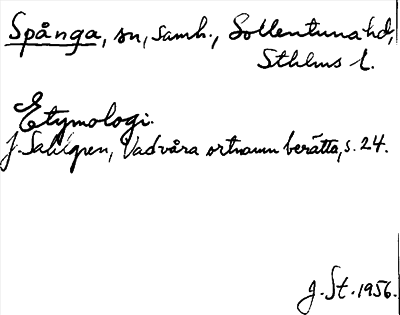 Spånga, sn, samh., Sollentuna hd,
Sthlms l.
Etymologi.
J. Sahlgren, Vad våra ortnamn berätta, s. 24.
J. St. 1956.